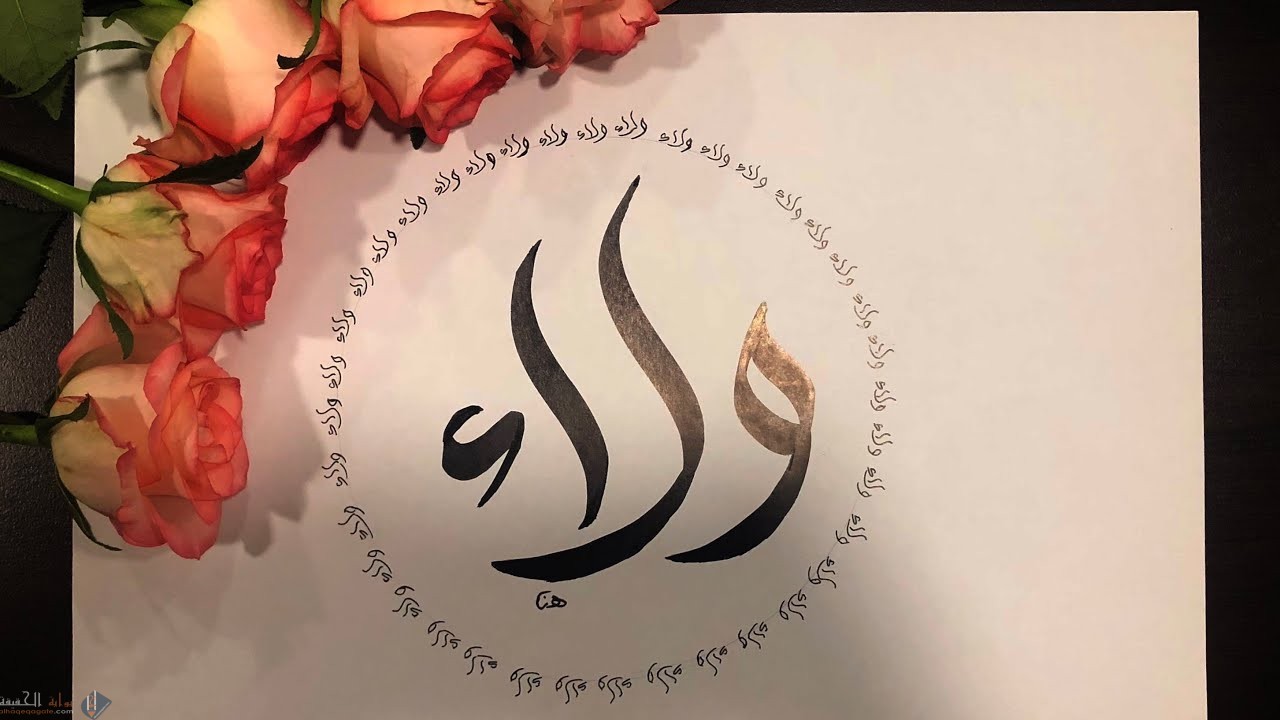 ولاء
هنا
ولاء ولاء ولاء ولاء ولاء ولاء ولاء ولاء ولاء ولاء ولاء ولاء ولاء ولاء ولاء ولاء ولاء ولاء ولاء ولاء ولاء ولاء ولاء ولاء ولاء ولاء ولاء ولاء ولاء ولاء ولاء ولاء ولاء ولاء ولاء ولاء ولاء ولاء ولاء ولاء ولاء ولاء ولاء
بوابة الحقيقة
alhaqeqagate.com